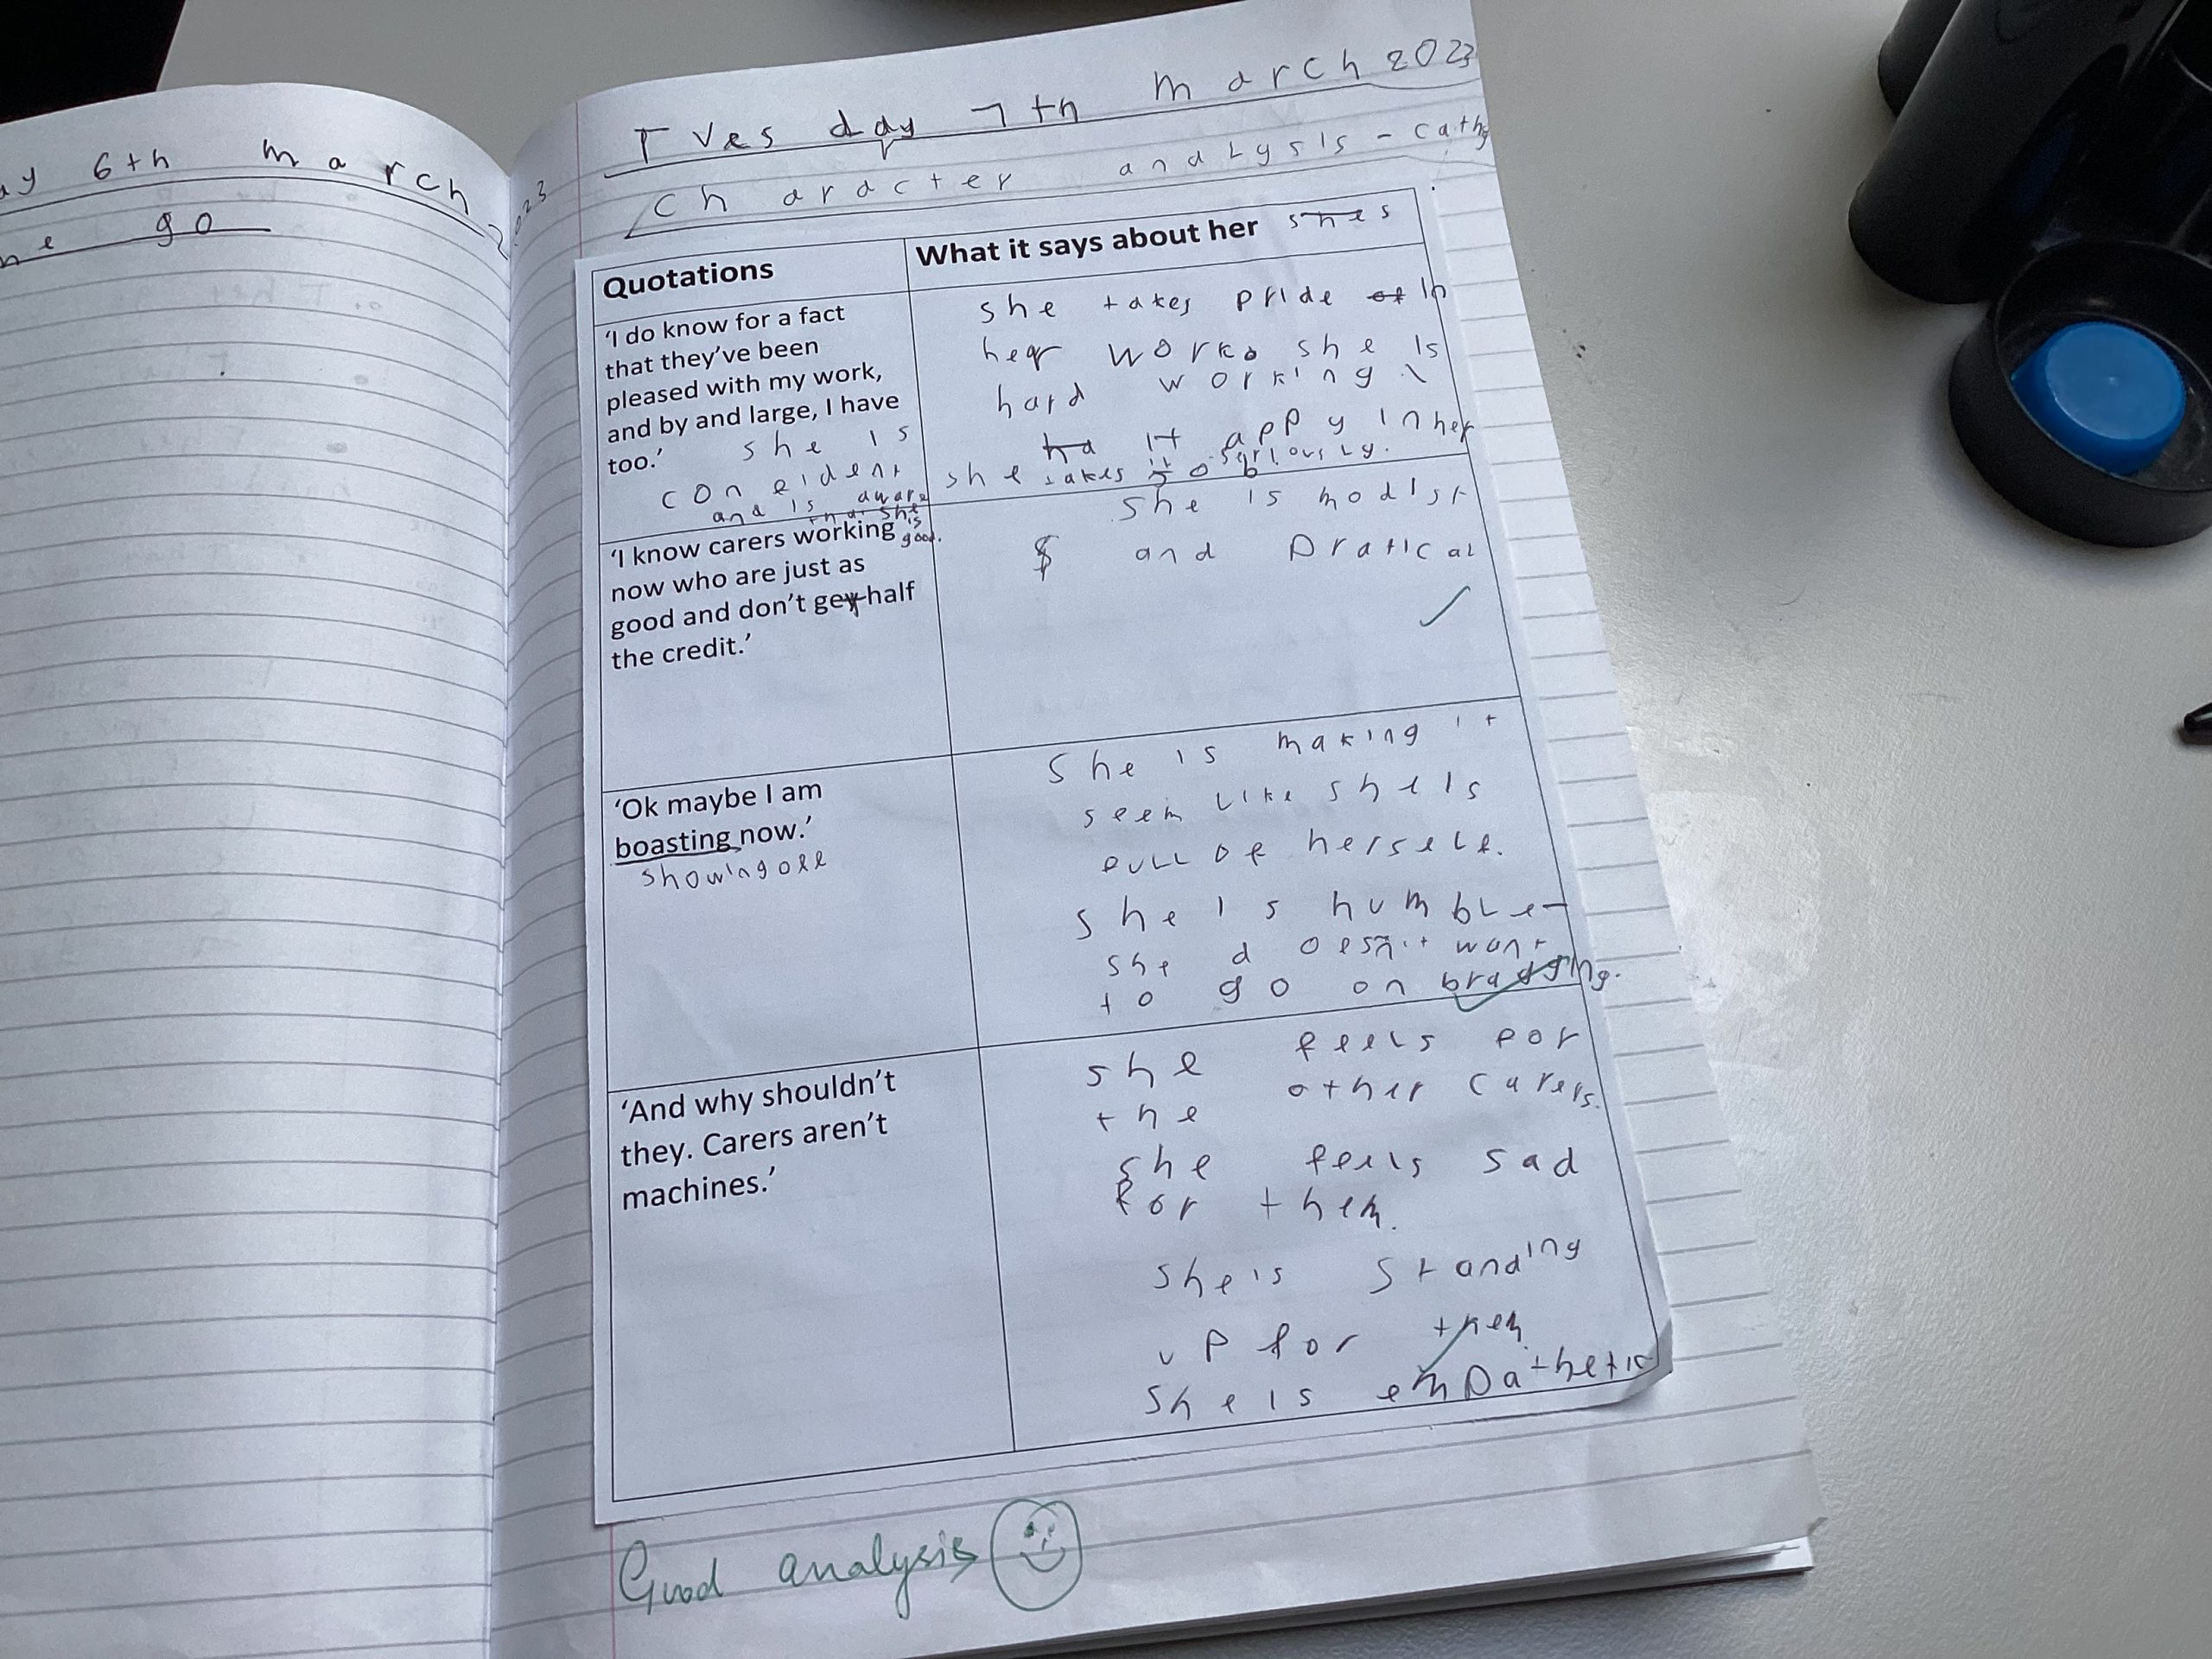 ay 6th march 2023
ne go
Tuesday 7th march 2023
character analysis - cathy
Quotations
What it says about her shes
'I do know for a fact
that they've been
pleased with my work,
and by and large, I have
too.' she is
confident
and is aware
that she
is
good.
she takes pride of in
her work. she is
hard working
ha it appy in her
she takes it seriously.
'I know carers working
now who are just as
good and don't get half
the credit.'
she is modist
and pratical
'Ok maybe I am
boasting now.'
showing off
she is making it
seem like she is
full of herself.
she is humble-
she doesn't want
to go on bragging.
'And why shouldn't
they. Carers aren't
machines.'
she feels for
the other carers.
she feels sad
for them.
she is standing
up for them
she is empathetic
Good analysis